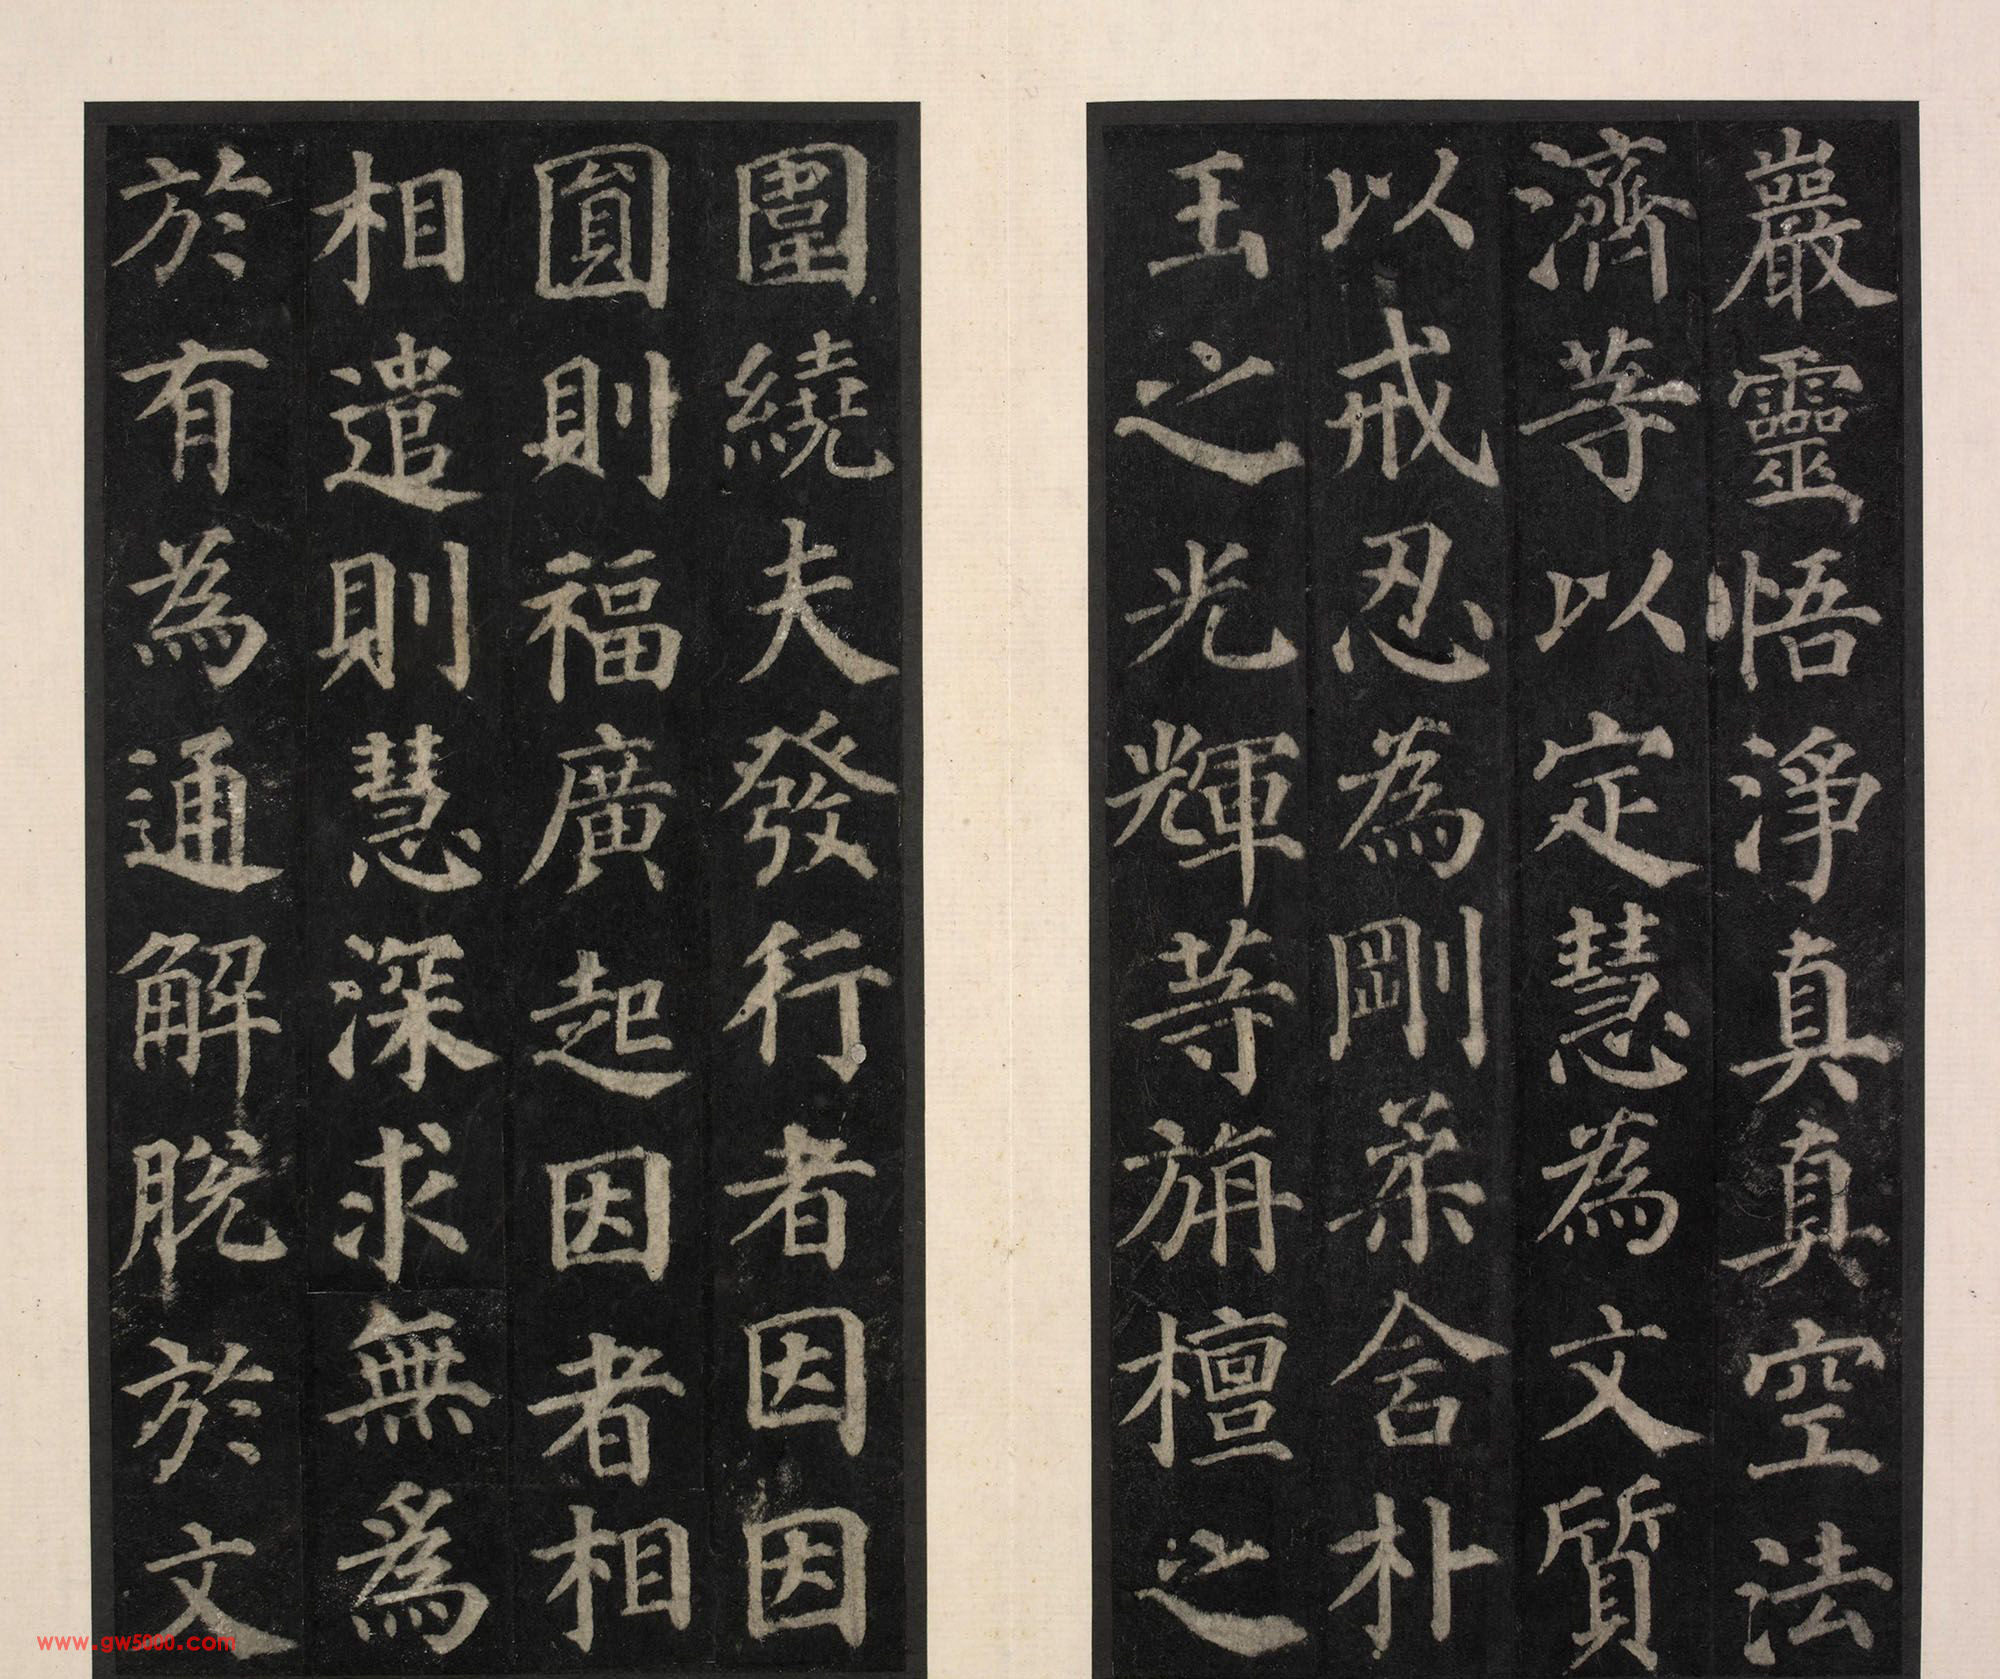 巖靈悟淨真真空法
濟等以定慧為文質
以戒忍為剛柔含朴
玉之光輝等旃檀之
圍繞夫發行者因因
圓則福廣起因者相
相遣則慧深求無為
於有為通解脫於文
www.gw5000.com